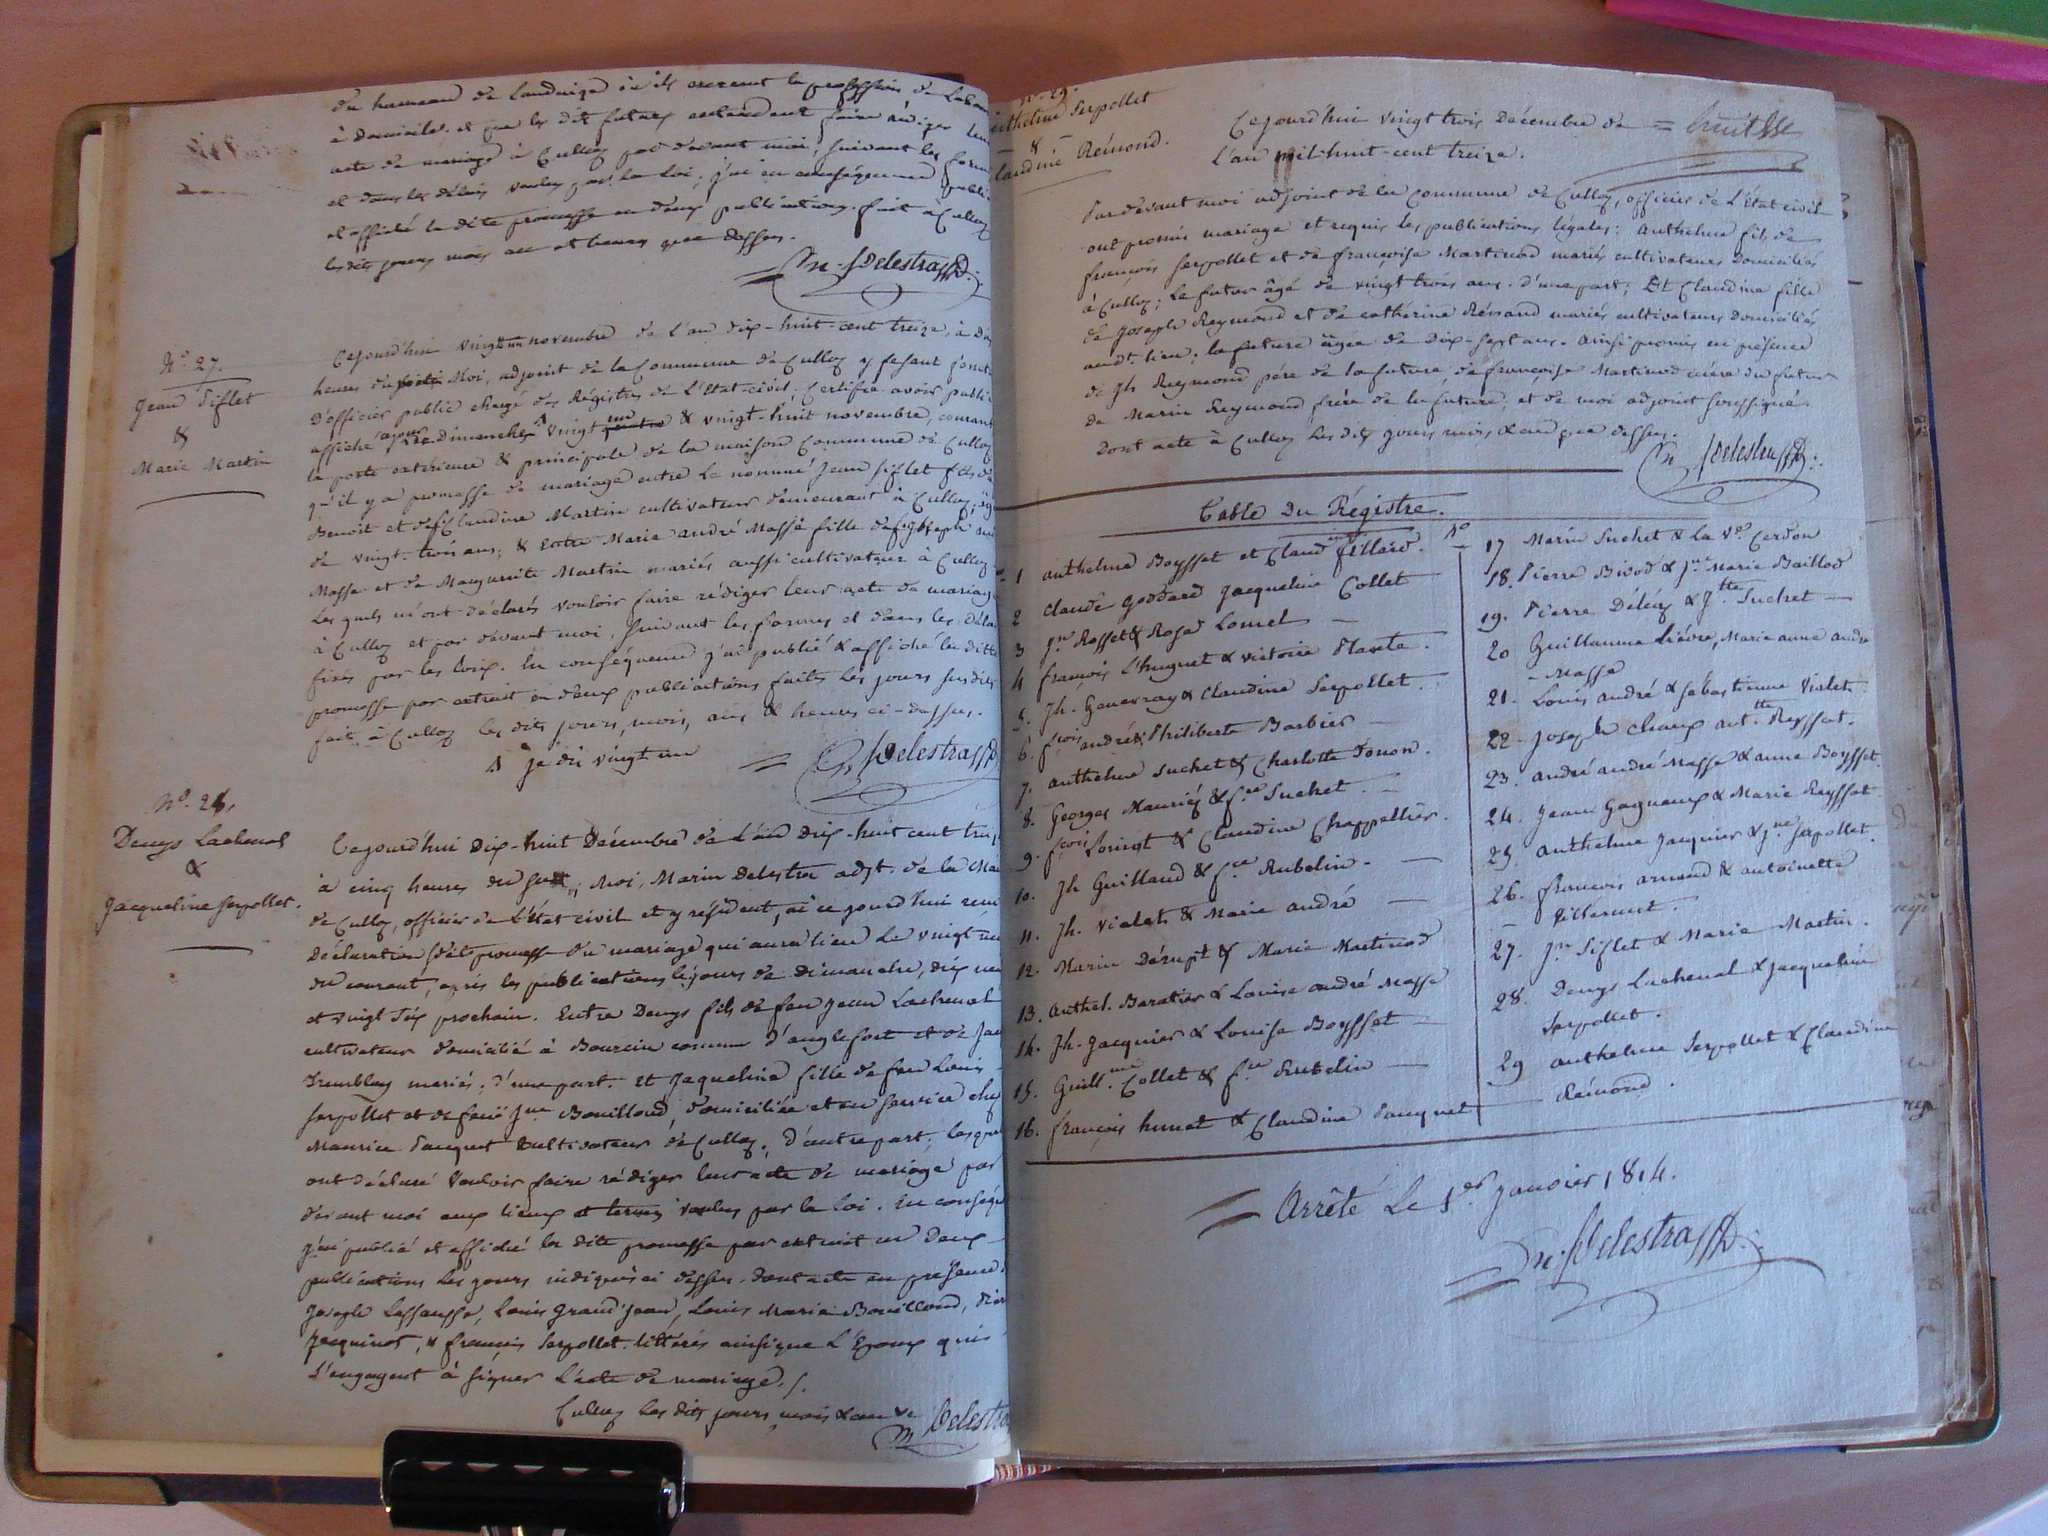 du hameau de Landaize où ils exercent la profession de
à domicile. et que les dits futurs entendent faire rédiger leur
acte de mariage à Culloz par devant moi, suivant les formes
et dans les délais voulus par la loi; j'ai en conséquence publié
et affiché la dite promesse en deux publications. fait à Culloz
les dits jours mois an et heures que dessus.
Delestra
N.º 27.
Jean Siflet
&
Marie Martin
Cejourd'hui vingt un novembre de l'an dix-huit-cent treize, à
heures du Moi, adjoint de la Commune de Culloz y fesant fonction
d'officier public chargé des Régistres de l'Etat-civil. Certifie avoir publié
affiché dimanche vingt & vingt-huit novembre, courant
la porte extérieure & principale de la maison Commune de Culloz
qu'il y a promesse de mariage entre le nommé Jean Siflet fils de
Benoit et de Claudine Martin cultivateur demeurant à Culloz,
de vingt-trois ans; & Marie andré Masse fille de Joseph
Masse et de Marguerite Martin mariés aussi cultivateur à Culloz
Les quels m'ont déclarés vouloir faire rédiger leur acte de mariage
à Culloz et par devant moi, suivant les formes et dans les délais
fixés par les loix. En conséquence j'ai publié & affiché la ditte
promesse par extrait en deux publications faites les jours susdits
fait à Culloz les dits jours, mois, ans & heures ci-dessus.
je dis vingt un
Delestra
N.º 28.
Denys Lachenal
&
Jacqueline Serpollet.
Cejourd'hui dix-huit Décembre de l'an dix-huit cent
à cinq heures du soir, Moi, Marin Delestra adjt. de la
de Culloz, officier de l'état civil et y résident, ai ce jourd'hui
déclaration et promesse du mariage qui aura lieu le vingt
du courant, après les publications le jours de dimanche, dix neuf
et vingt six prochain. Entre Denys fils de feu Jean Lachenal
cultivateur domicilié à Bourcin commune d'anglefort et de
Tremblay mariés; d'une part. et Jaqueline fille de feu Louis
Serpollet et de feue Jne Bouilloud, domiciliée et en service chez
Maurice Pauquet cultivateur de Culloz. d'autre part;
ont déclaré vouloir faire rédiger leur acte de mariage par
devant moi aux lieux et termes voulus par la loi. En
j'ai publié et affiché la dite promesse par extrait en deux
publications les jours indiqués ci dessus. dont acte en présence
Joseph Lassausse, Louis Grand'jean, Louis Marie Bouilloud,
Jacquinot, & François Serpollet. littérés ainsi que l'époux qui
s'engagent à signer l'acte de mariage./.
Culloz les dits jours mois & an
Delestra
N.º 29.
anthelme Serpollet
&
Claudine Rémond.
Cejourd'hui vingt trois décembre de
L'an mil-huit-cent treize.
Pardevant moi adjoint de la Commune de Culloz, officier de L'état civil
ont promis mariage et requis les publications légales: anthelme fils de
françois Serpollet et de françoise Martinod mariés cultivateurs domiciliés
à Culloz; Le futur âgé de vingt trois ans. d'une part; Et Claudine fille
de Joseph Reymond et de catherine Rénaud mariés cultivateurs domiciliés
audt. lieu; la future âgée de dix-sept ans. ainsi promis en présence
de Jh Reymond père de la future de françoise Martinod mère du futur
de Marin Reymond frère de la future; et de moi adjoint soussigné.
dont acte à Culloz les dits jours mois, & an que dessus.
Delestra
Table Du Régistre.
1 anthelme Boysset et Claudine fillard.
2 Claude Goddard Jacqueline Collet
3 Jn Rosset & Rose Lomel
4 françois L'huguet & victoire Plante.
5. Jh. Genevray & Claudine Serpollet.
6. fçois andré & Philiberte Barbier
7. anthelme Suchet & Charlotte Tonon.
8. Georges Mauriéz & fse Suchet.
9. fçois & Claudine Chappellier.
10. Jh Guilland & fse Rubelin.
11. Jh. vialet & Marie andré
12. Marin & Marie Martinod
13. Anthel. Baratier & Louise andré Masse
14. Jh. Jacquier & Louise Boysset
15. Guill.me Collet & fse Rubelin
16. françois hunet & Claudine Pauquet
Nº
17 Marin Suchet & la Ve Cerdon
18. Pierre Bivod & Jne Marie Baillod
19. Pierre Déléaz & Jtte Suchet
20 Guillaume Lièvre, Marie anne andré
- Masse
21. Louis andré & Sébastienne vialet
22. Joseph Chaux antte Reysset.
23. andré andré Masse & anne Boysset.
24. Jean Gagneux & Marie Reysset.
25. anthelme Jacquier & Jne Serpollet
26. francois arnaud & antoinette
Villermet.
27. Jn Siflet & Marie Martin.
28. Denys Lachenal & Jacqueline
Serpollet.
29 anthelme Serpollet & Claudine
Rémond.
= Arrêté Le 1er Janvier 1814.
Delestra